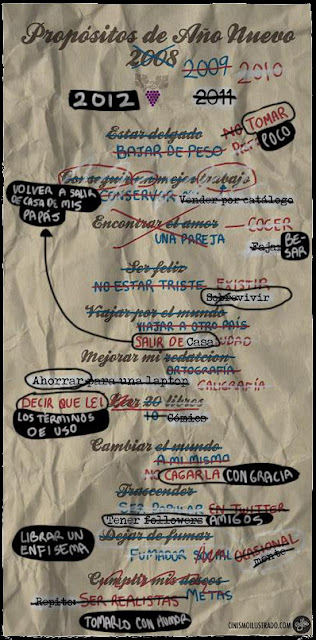 Propósitos de Año Nuevo
2008 2009 2010
2012 2011
Estar delgado NO TOMAR
BAJAR DE PESO POCO
Conseguir un mejor trabajo
VOLVER A SALIR DE CASA DE MIS PAPÁS
CONSERVAR MI Vender por catálogo
Encontrar el amor — COGER
UNA PAREJA BESAR
Ser feliz
NO ESTAR TRISTE EXISTIR
Sobrevivir
Viajar por el mundo
VIAJAR A OTRO PAÍS
SALIR DE Casa CIUDAD
Mejorar mi redatcion
ORTOGRAFÍA
Ahorrar para una laptop CALIGRAFÍA
DECIR QUE LEI Leer 20 libros
LOS TÉRMINOS DE USO 10 Cómics
Cambiar el mundo
A MI MISMO
NO CAGARLA CON GRACIA
Trascender
SER POPULAR EN TWITTER
Tener followers AMIGOS
LIBRAR UN ENFISEMA Dejar de fumar
FUMADOR SOCIAL OCASIONAL
mente
Cumplir mis deseos
METAS
Repito: SER REALISTAS
TOMARLO CON HUMOR
CINISMOILUSTRADO.COM